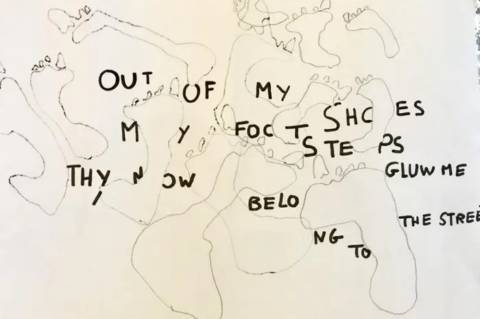 OUT OF MY SHOES
MY FOOT STEPS
GLUW ME
THY NOW
BELONG TO
THE STREE